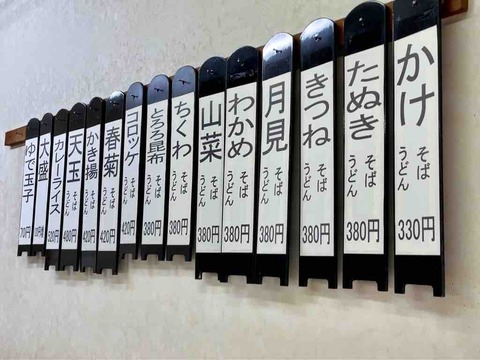 かけ そば うどん 330円
たぬき そば うどん 380円
きつね そば うどん 380円
月見 そば うどん 380円
わかめ そば うどん 380円
山菜 そば うどん 380円
ちくわ そば うどん 380円
とろろ昆布 そば うどん 380円
コロッケ そば うどん 420円
春菊 そば うどん 420円
かき揚 そば うどん 420円
天玉 そば うどん 480円
カレーライス 520円
大盛
ゆで玉子 70円